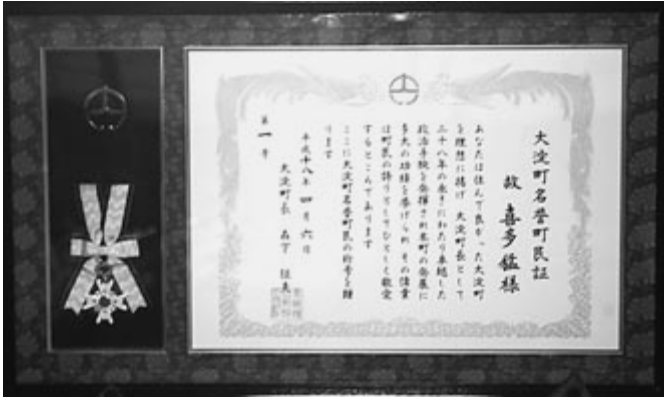 大淀町名誉町民証
故 喜多 鑑 様
あなたは住んで良かった大淀町
を理想に掲げ 大淀町長として
三十八年の永きにわたり卓越した
政治手腕を発揮され本町の発展に
多大の功績を挙げられ その偉業
は町民の誇りとしてひとしく敬愛
するところであります
ここに大淀町名誉町民の称号を贈
ります
平成十八年 四月 六日
大淀町長
第一号